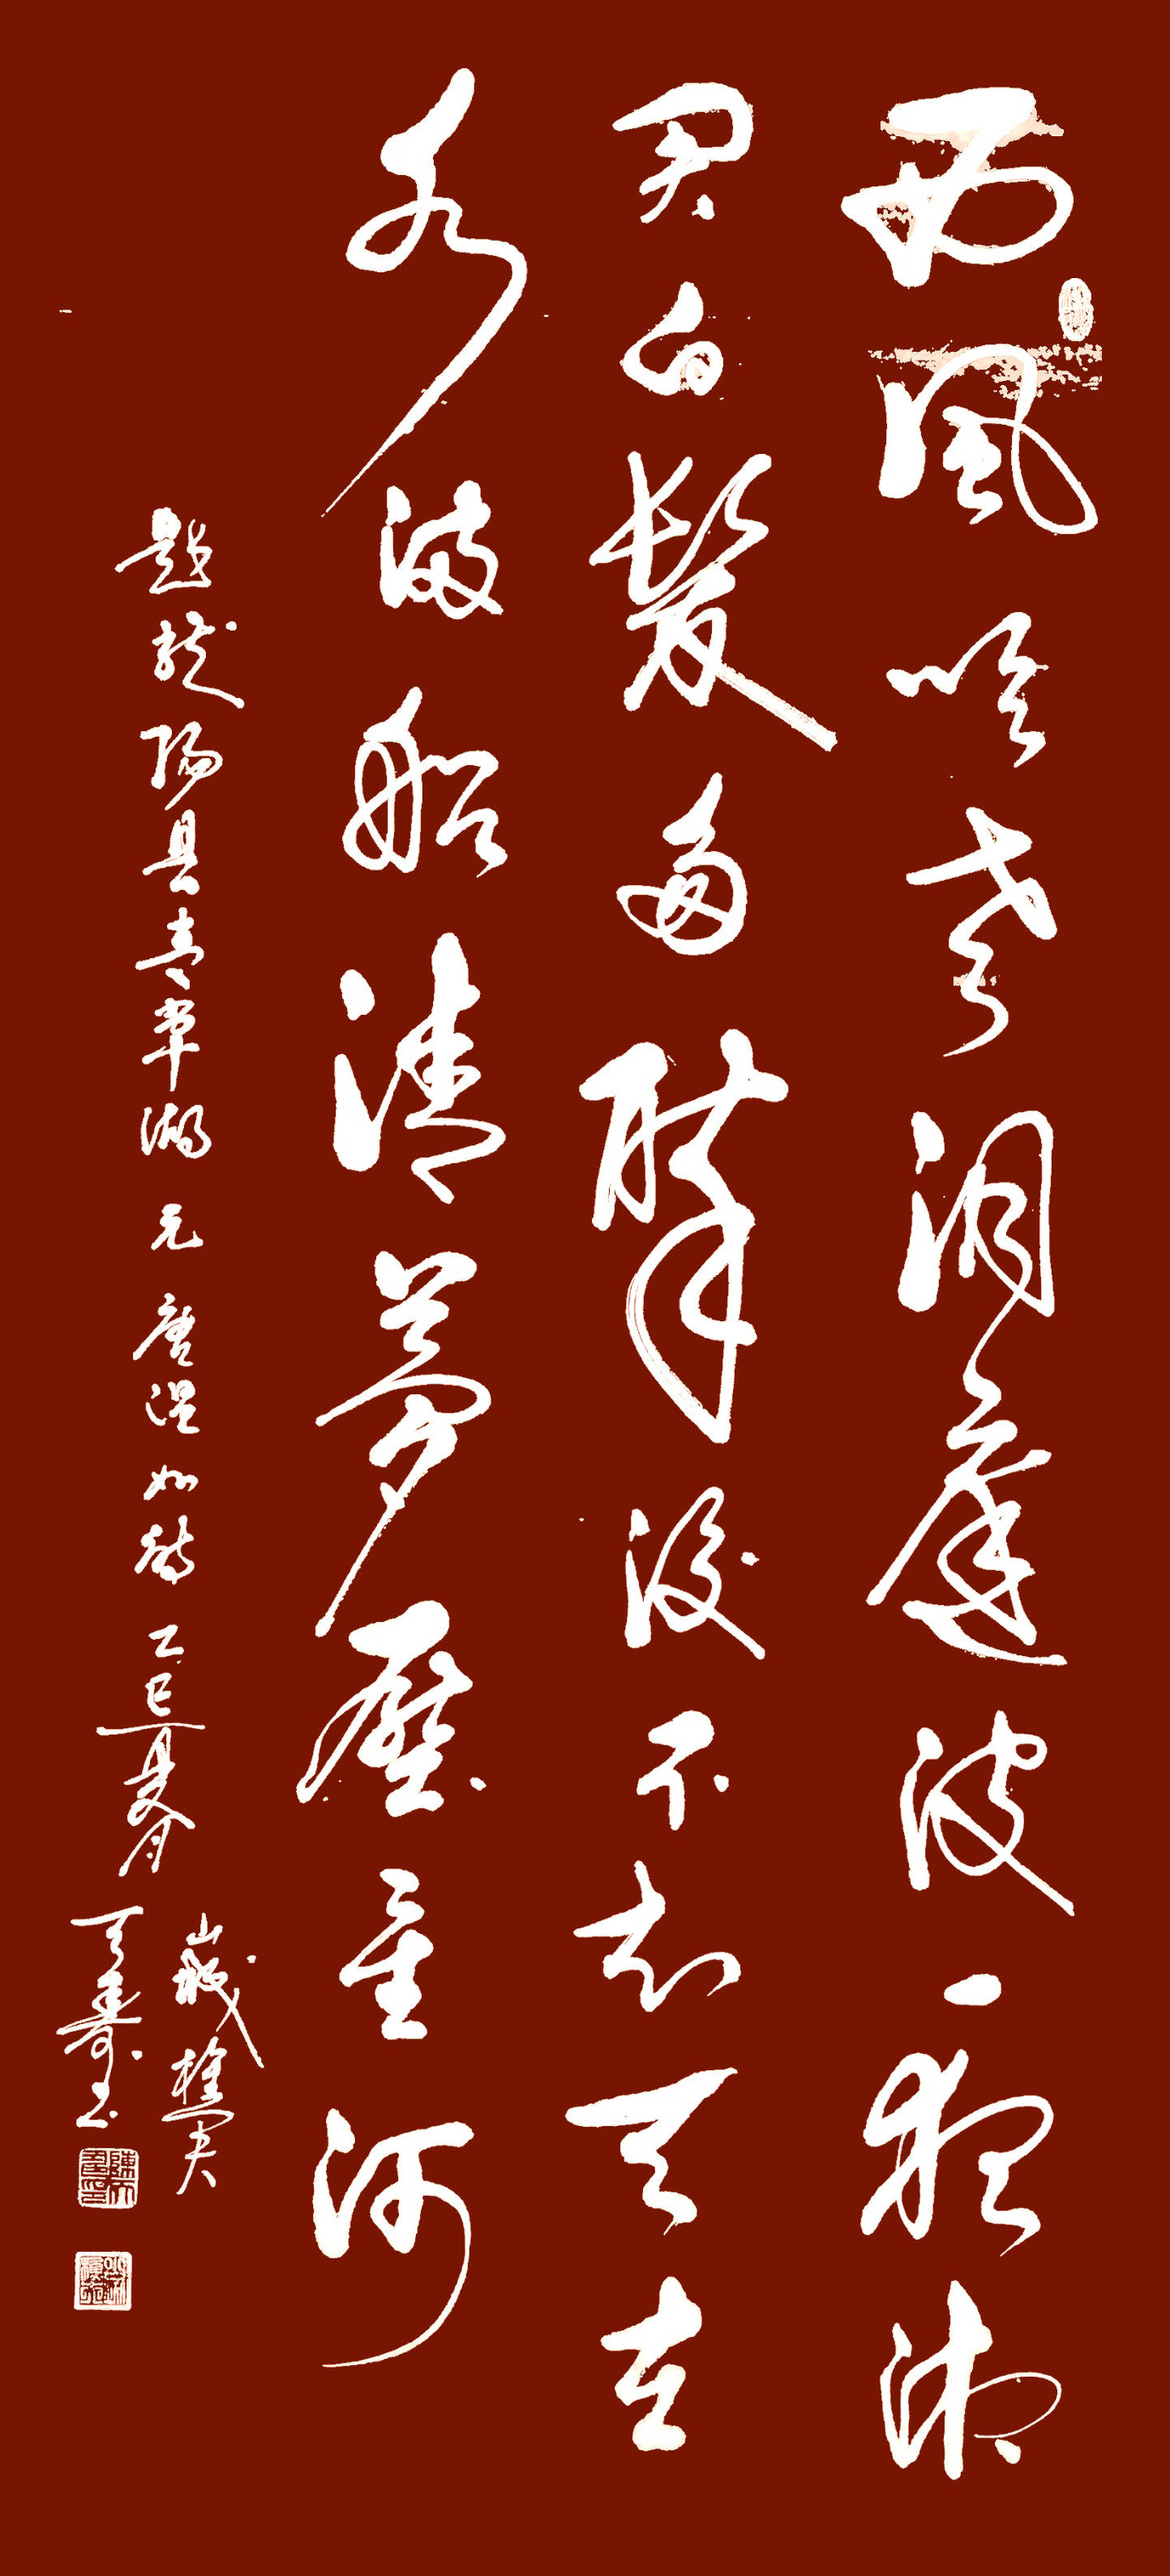 西風吹老洞庭波一夜湘
君白髮多醉後不知天在
水滿船清夢壓星河
題龍陽縣青草湖 元 唐溫如詩 乙巳夏月
樵夫
天壽書